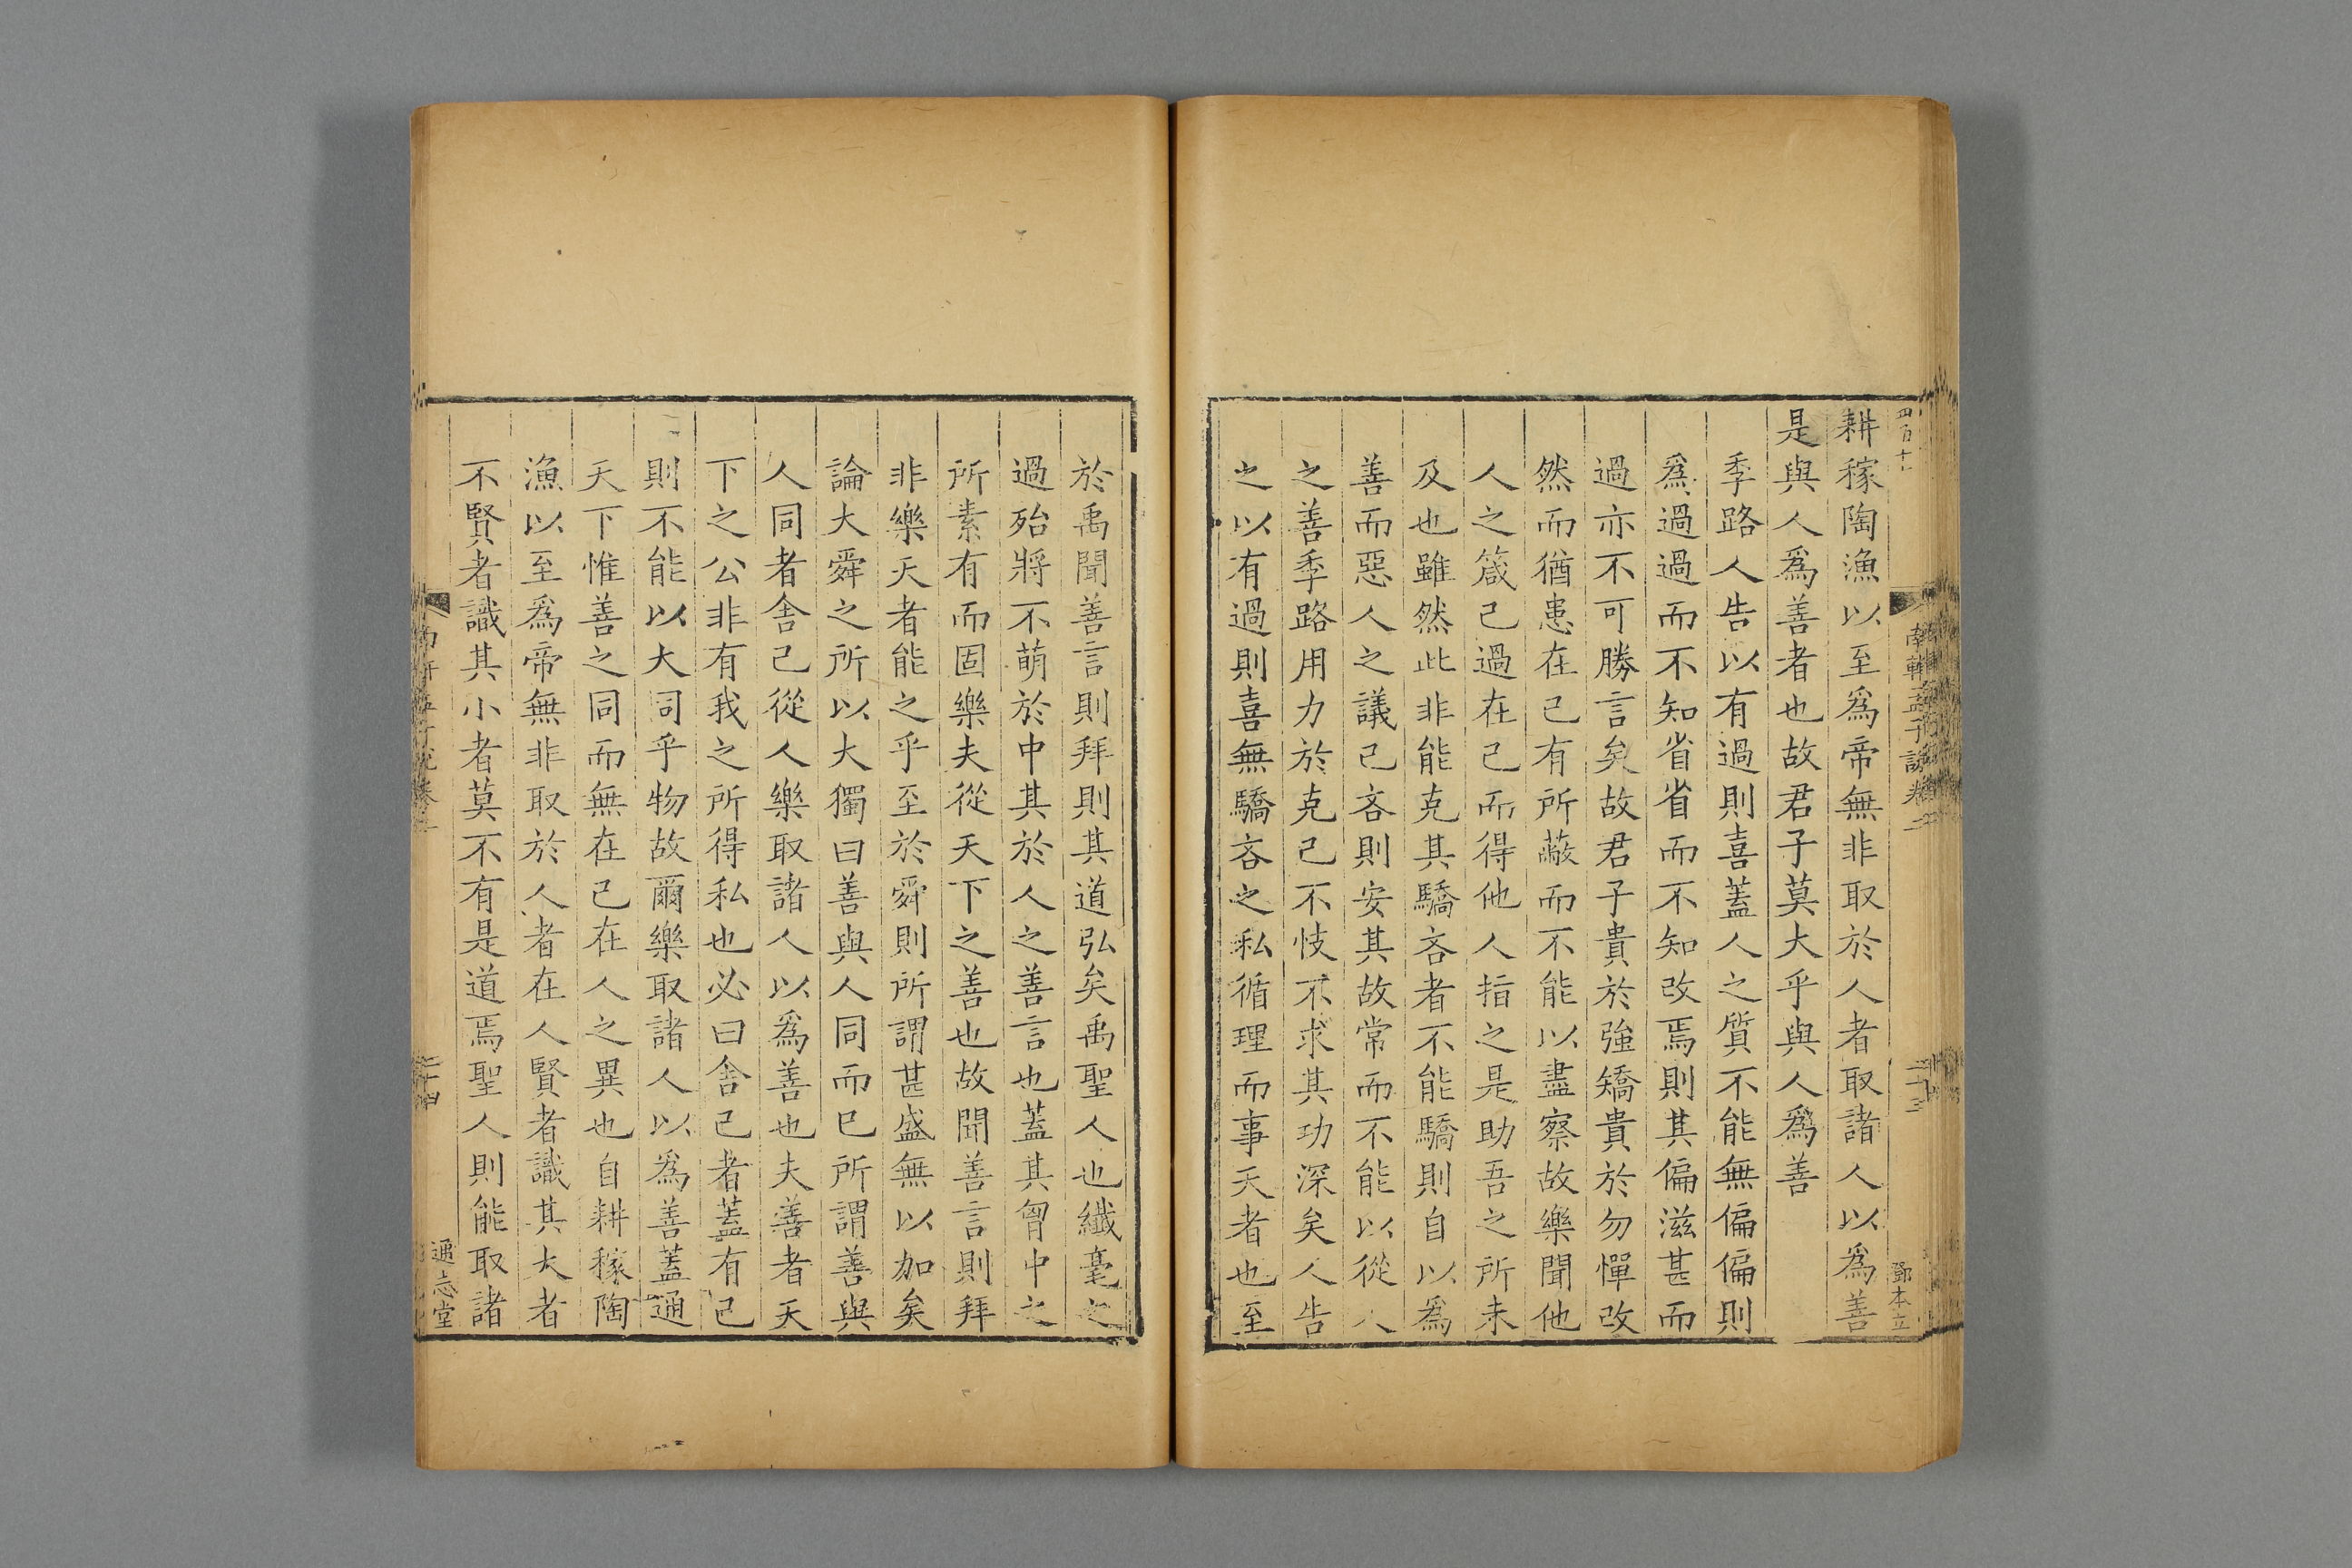 四百十
南軒孟子說卷二
二十三
鄧本立
耕稼陶漁以至爲帝無非取於人者取諸人以爲善
是與人爲善者也故君子莫大乎與人爲善
季路人告以有過則喜蓋人之質不能無偏偏則
爲過過而不知省省而不知改焉則其偏滋甚而
過亦不可勝言矣故君子貴於強矯貴於勿憚改
然而猶患在己有所蔽而不能以盡察故樂聞他
人之箴己過在己而得他人指之是助吾之所未
及也雖然此非能克其驕吝者不能驕則自以爲
善而惡人之議己吝則安其故常而不能以從人
之善季路用力於克己不忮不求其功深矣人告
之以有過則喜無驕吝之私循理而事天者也至
於禹聞善言則拜則其道弘矣禹聖人也纖毫之
過殆將不萌於中其於人之善言也蓋其胷中之
所素有而固樂夫從天下之善也故聞善言則拜
非樂天者能之乎至於舜則所謂甚盛無以加矣
論大舜之所以大獨曰善與人同而已所謂善與
人同者舍己從人樂取諸人以爲善也夫善者天
下之公非有我之所得私也必曰舍己者蓋有己
則不能以大同乎物故爾樂取諸人以爲善蓋通
天下惟善之同而無在己在人之異也自耕稼陶
漁以至爲帝無非取於人者在人賢者識其大者
不賢者識其小者莫不有是道焉聖人則能取諸
二十四
通志堂